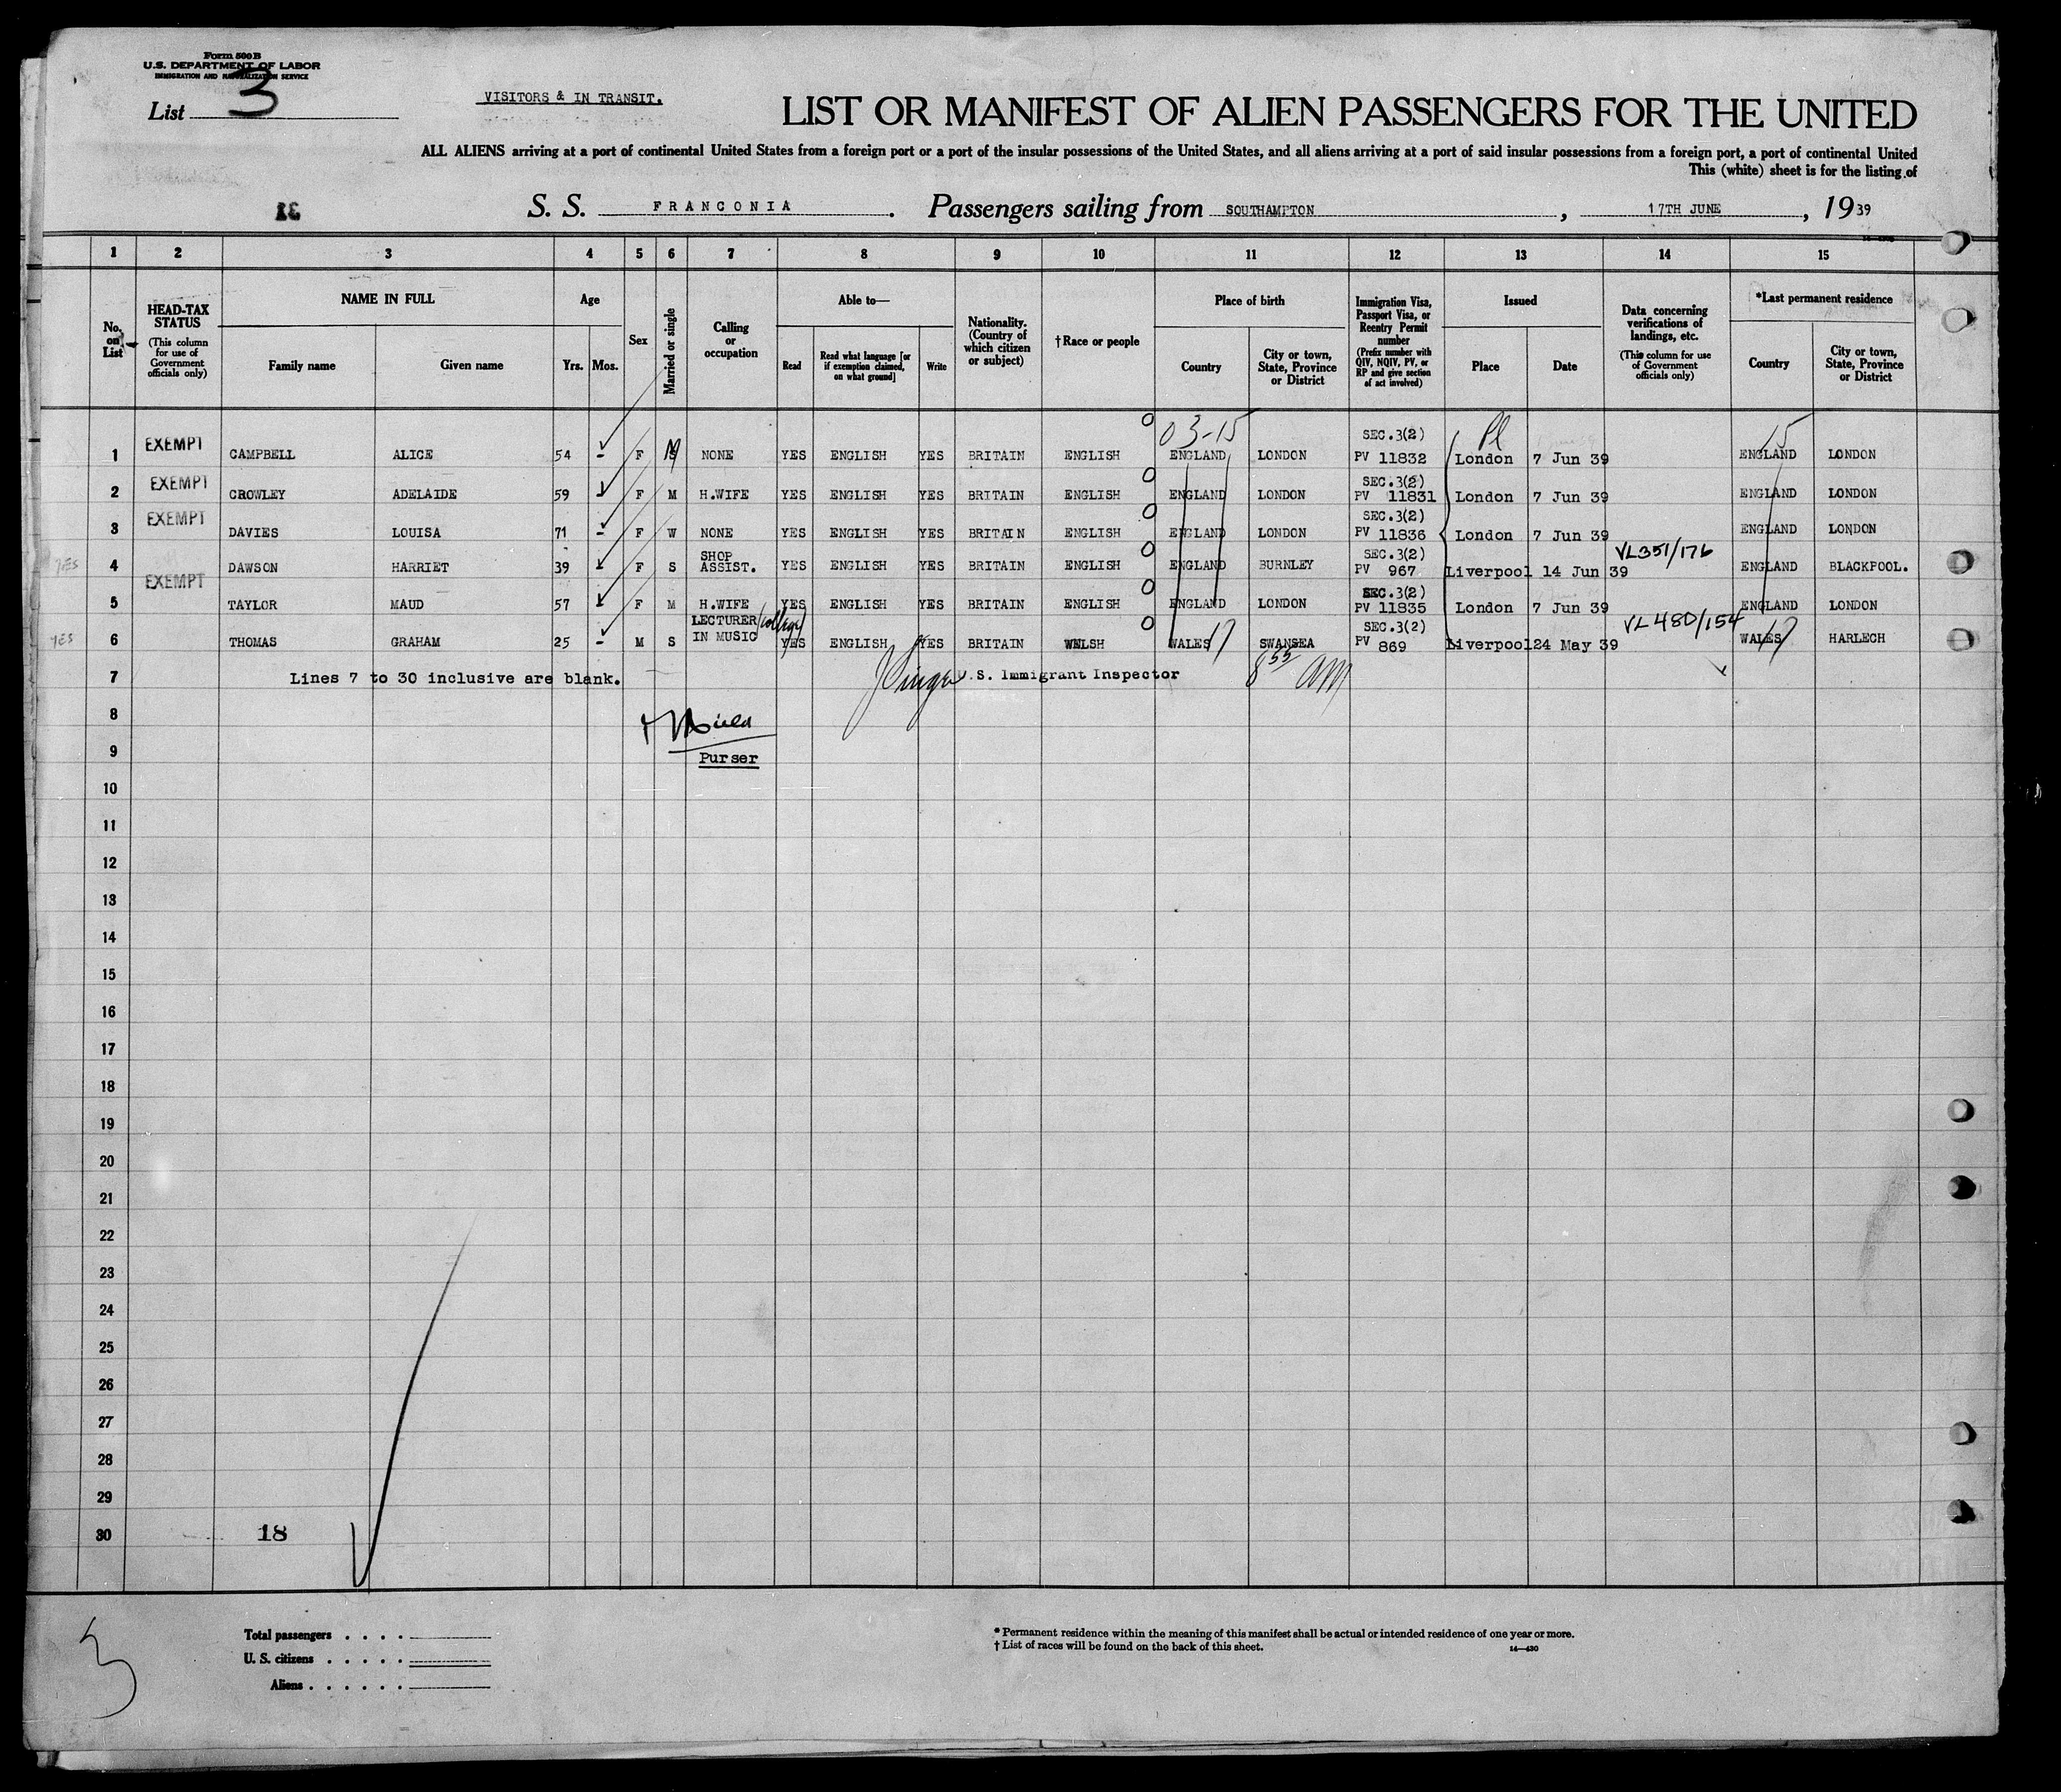 Form 500 B
U.S. DEPARTMENT OF LABOR
IMMIGRATION AND NATURALIZATION SERVICE
List 3
VISITORS & IN TRANSIT.
LIST OR MANIFEST OF ALIEN PASSENGERS FOR THE UNITED
ALL ALIENS arriving at a port of continental United States from a foreign port or a port of the insular possessions of the United States, and all aliens arriving at a port of said insular possessions from a foreign port, a port of continental United
This (white) sheet is for the listing of
S. S. FRANCONIA. Passengers sailing from SOUTHAMPTON, 17TH JUNE, 1939
1 2 3 4 5 6 7 8 9 10 11 12 13 14 15
No. on List
HEAD-TAX STATUS
(This column for use of Government officials only)
NAME IN FULL
Family name
Given name
Age
Yrs. Mos.
Sex
Married or single
Calling or occupation
Able to—
Read
Read what language [or if exemption claimed, on what ground]
Write
Nationality. (Country of which citizen or subject)
†Race or people
Place of birth
Country
City or town, State, Province or District
Immigration Visa, Passport Visa, or Reentry Permit number
(Prefix number with QIV, NQIV, PV, or RP and give section of act involved)
Issued
Place
Date
Data concerning verifications of landings, etc.
(This column for use of Government officials only)
*Last permanent residence
Country
City or town, State, Province or District
03-15 15
1 EXEMPT CAMPBELL ALICE 54 - F NONE YES ENGLISH YES BRITAIN ENGLISH ENGLAND LONDON SEC.3(2) PV 11832 London 7 Jun 39 ENGLAND LONDON
2 EXEMPT CROWLEY ADELAIDE 59 - F M H.WIFE YES ENGLISH YES BRITAIN ENGLISH ENGLAND LONDON SEC.3(2) PV 11831 London 7 Jun 39 ENGLAND LONDON
3 EXEMPT DAVIES LOUISA 71 - F W NONE YES ENGLISH YES BRITAIN ENGLISH ENGLAND LONDON SEC.3(2) PV 11836 London 7 Jun 39 ENGLAND LONDON
YES 4 DAWSON HARRIET 39 F S SHOP ASSIST. YES ENGLISH YES BRITAIN ENGLISH ENGLAND BURNLEY SEC.3(2) PV 967 Liverpool 14 Jun 39 VL351/176 ENGLAND BLACKPOOL.
5 EXEMPT TAYLOR MAUD 57 F M H.WIFE YES ENGLISH YES BRITAIN ENGLISH ENGLAND LONDON SEC.3(2) PV 11835 London 7 Jun 39 ENGLAND LONDON
YES 6 THOMAS GRAHAM 25 - M S LECTURER IN MUSIC /college/ YES ENGLISH YES BRITAIN WELSH WALES 17 SWANSEA SEC.3(2) PV 869 Liverpool 24 May 39 VL480/154 WALES 17 HARLECH
7 Lines 7 to 30 inclusive are blank. U.S. Immigrant Inspector 8 55 AM
8
9 Purser
10
11
12
13
14
15
16
17
18
19
20
21
22
23
24
25
26
27
28
29
30 18
3
Total passengers
U. S. citizens
Aliens
* Permanent residence within the meaning of this manifest shall be actual or intended residence of one year or more.
† List of races will be found on the back of this sheet.
14—430